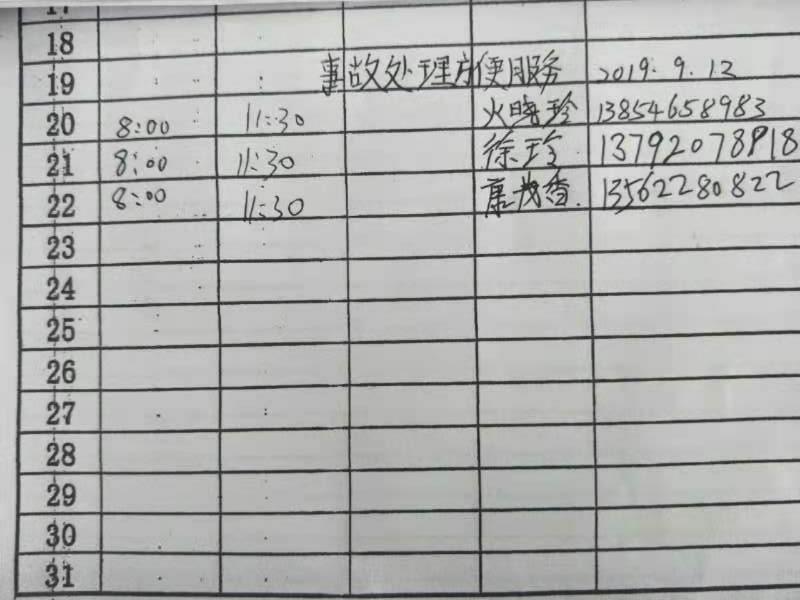 17
18
19 事故处理方便服务 2019.9.12
20 8:00 11:30 火晓玲 13854658983
21 8:00 11:30 徐玲 13792078918
22 8:00 11:30 康茂香. 13562280822
23
24
25
26
27
28
29
30
31